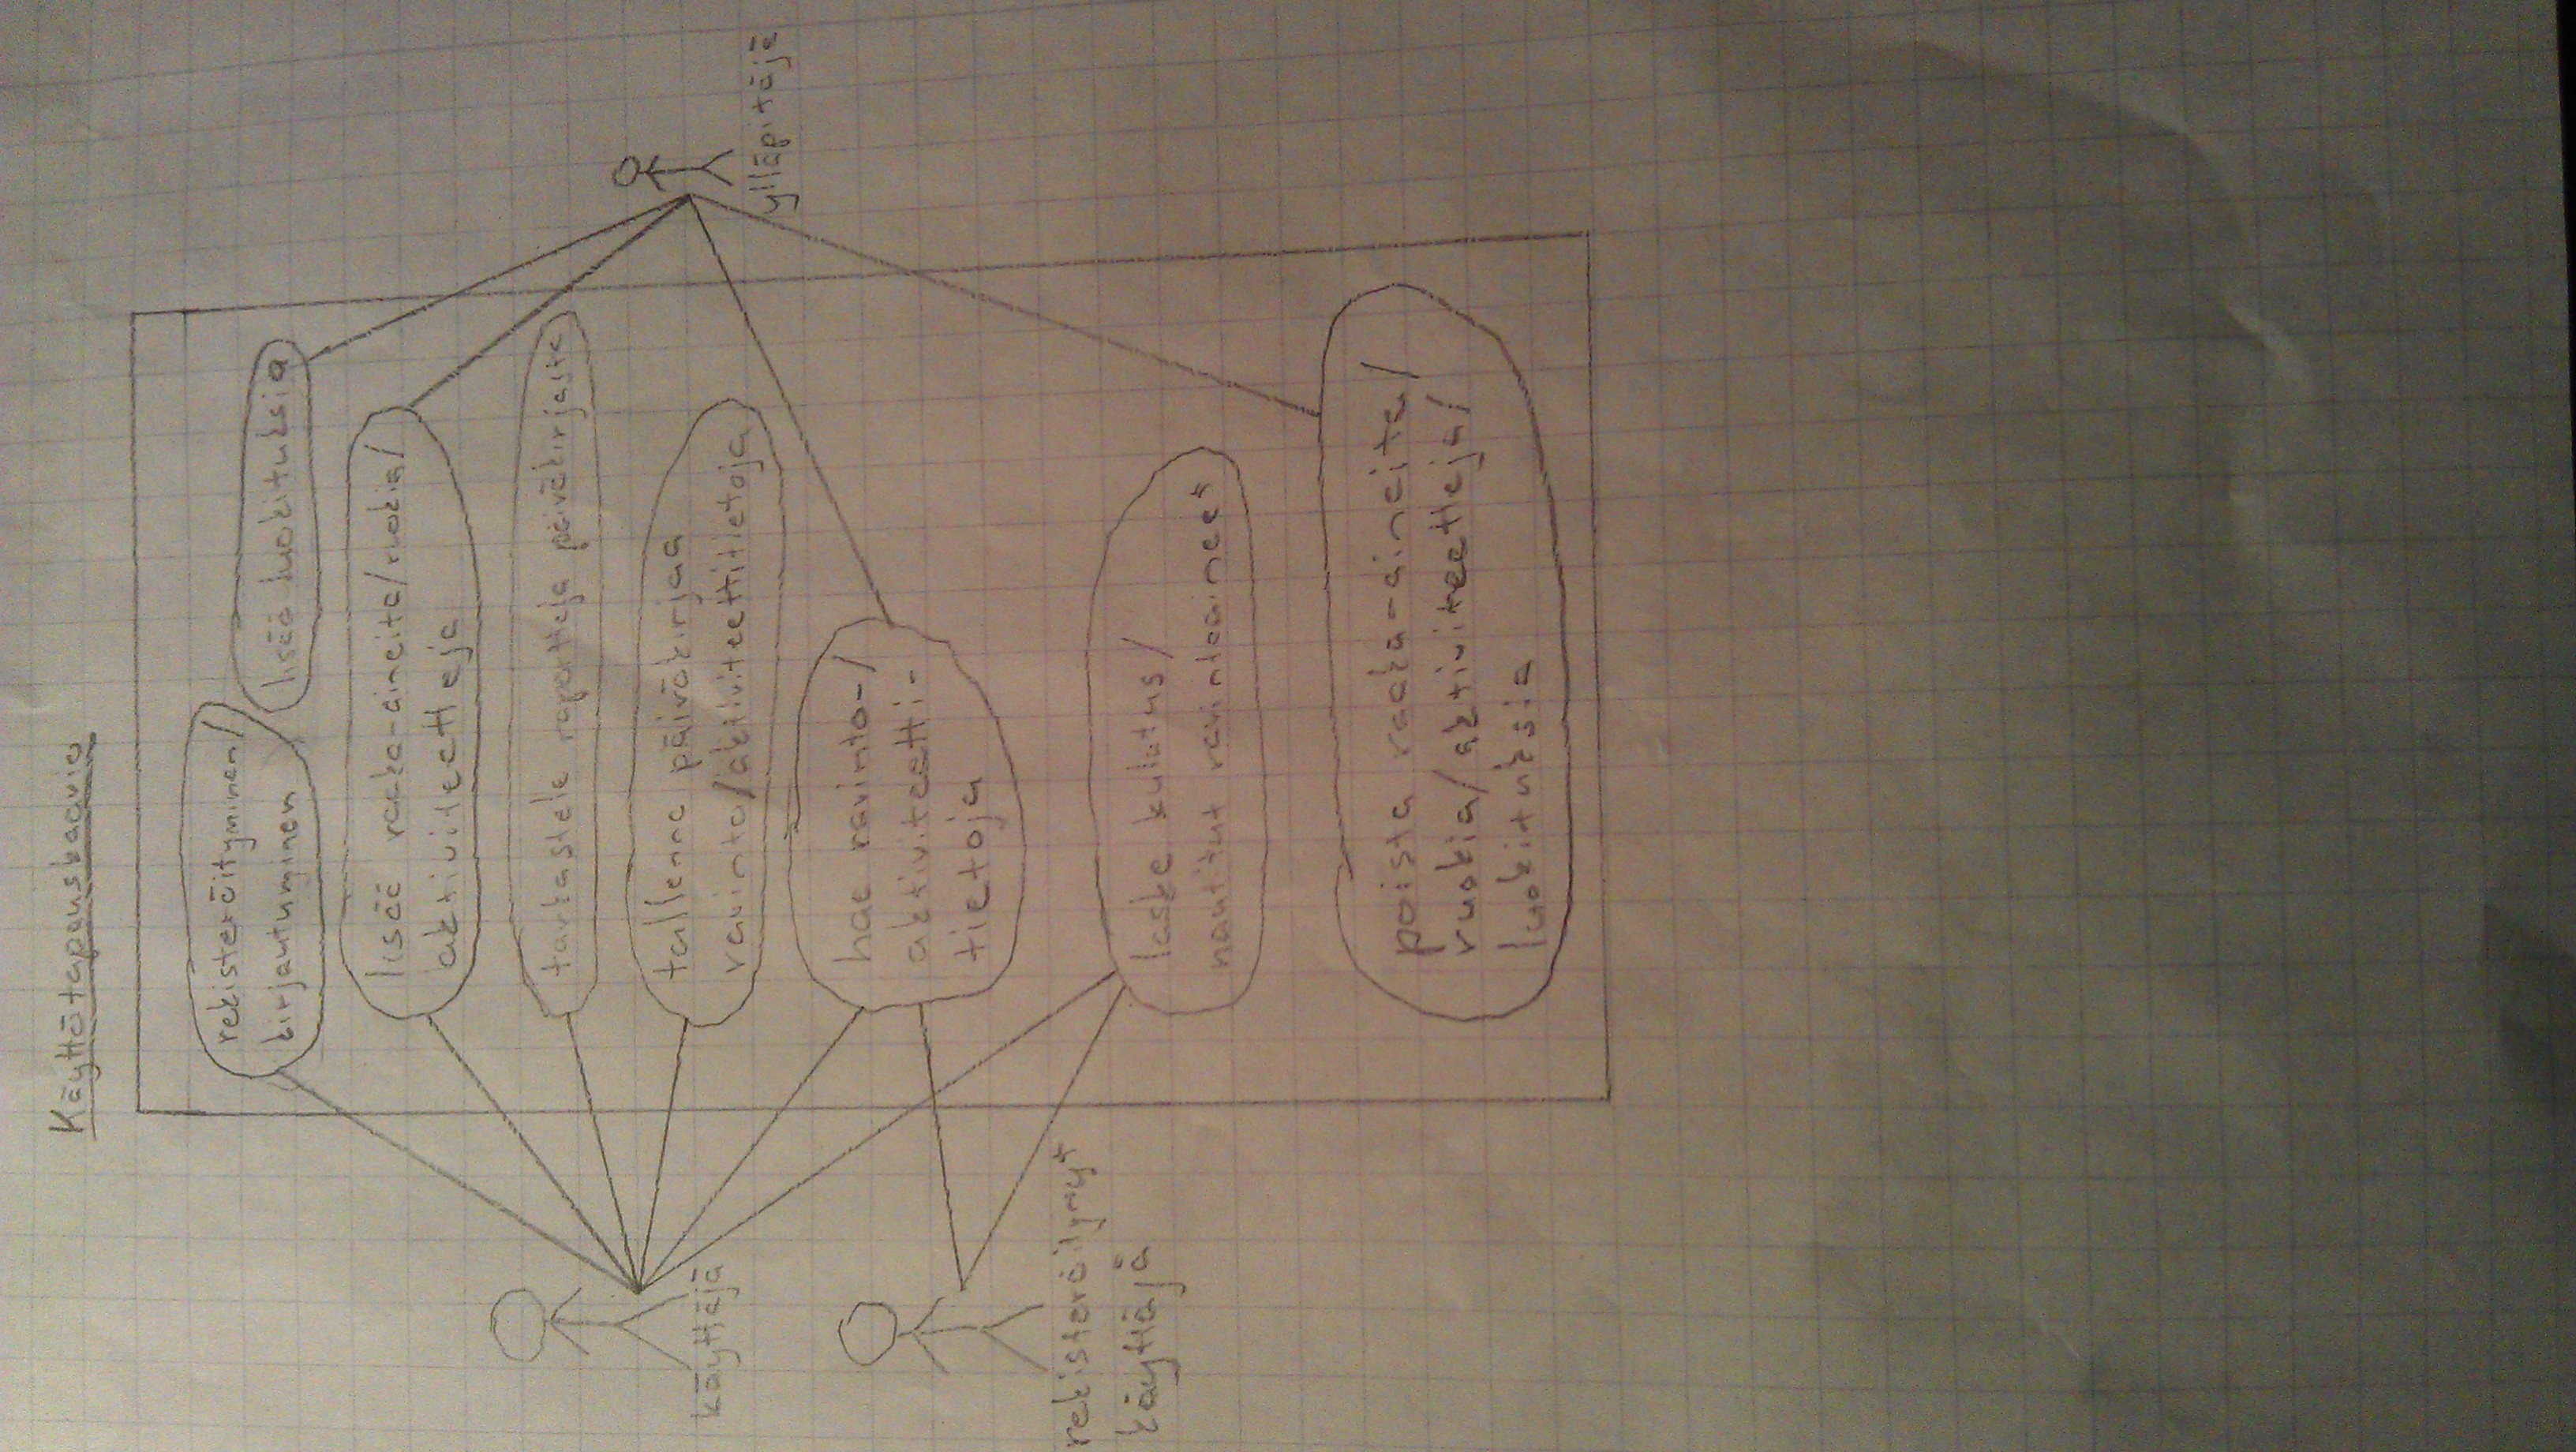 Käyttötapauskaavio
rekisteröityminen/
kirjautuminen
lisää luokituksia
lisää raaka-aineita/ruokia/
aktiviteetteja
tarkastele raportteja päiväkirjasta
tallenna päiväkirjaa
ravinto/aktiviteettitietoja
hae ravinto-/
aktiviteetti-
tietoja
laske kulutus/
nautitut ravintoaineet
poista raaka-aineita/
ruokia/aktiviteetteja/
luokituksia
käyttäjä
rekisteröitynyt
käyttäjä
ylläpitäjä